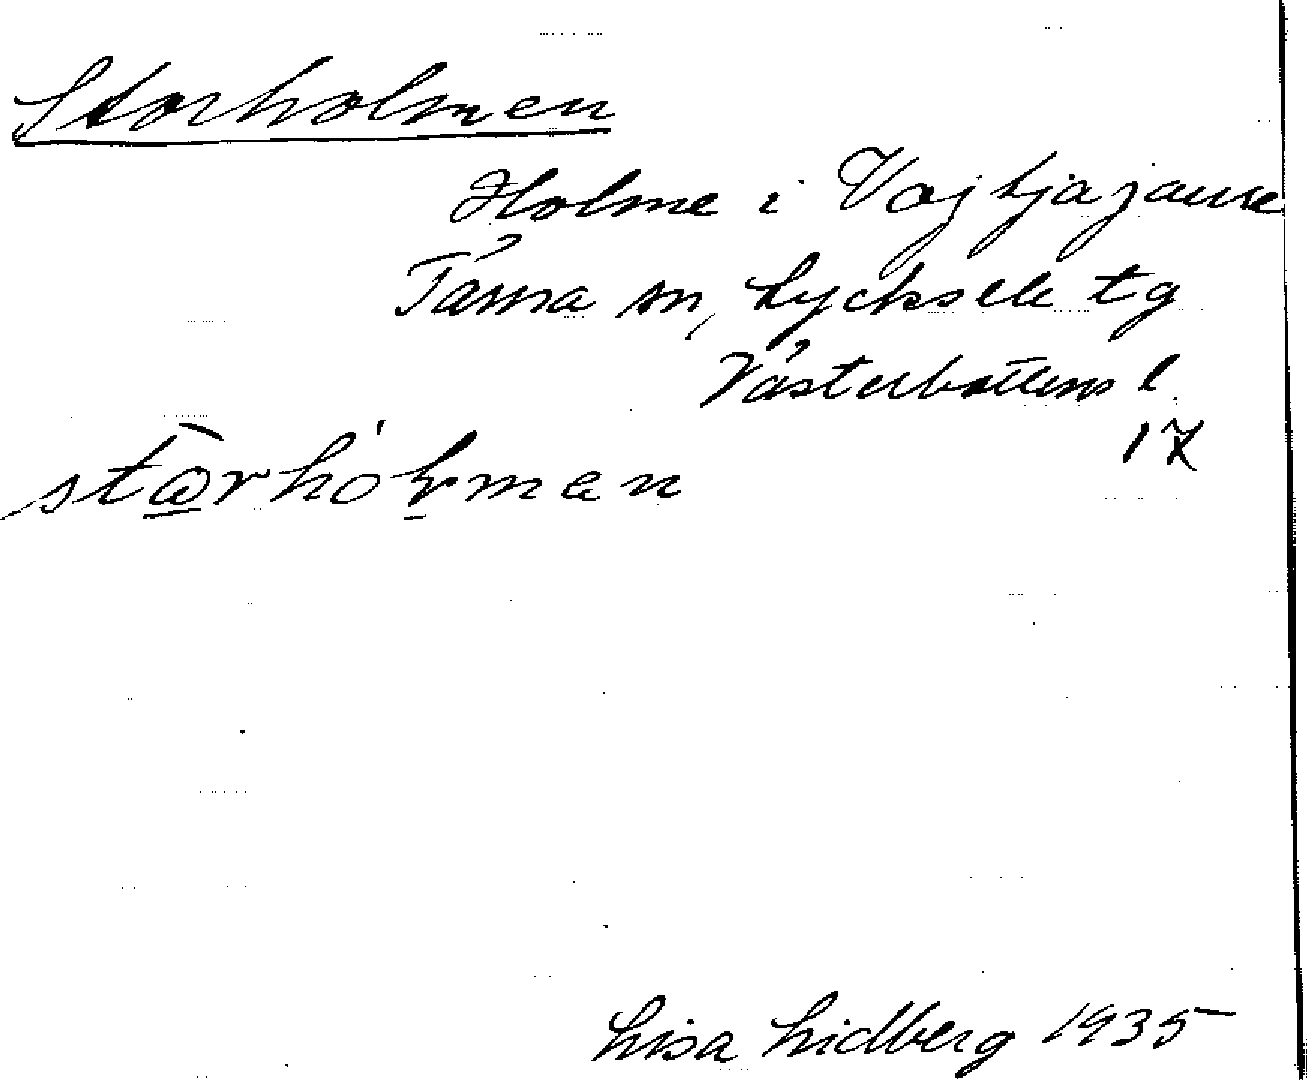 Storholmen
Holme i Vojtjajaure
Tärna sn, Lycksele tg
Västerbottens l.
17
Lisa Lidberg 1935